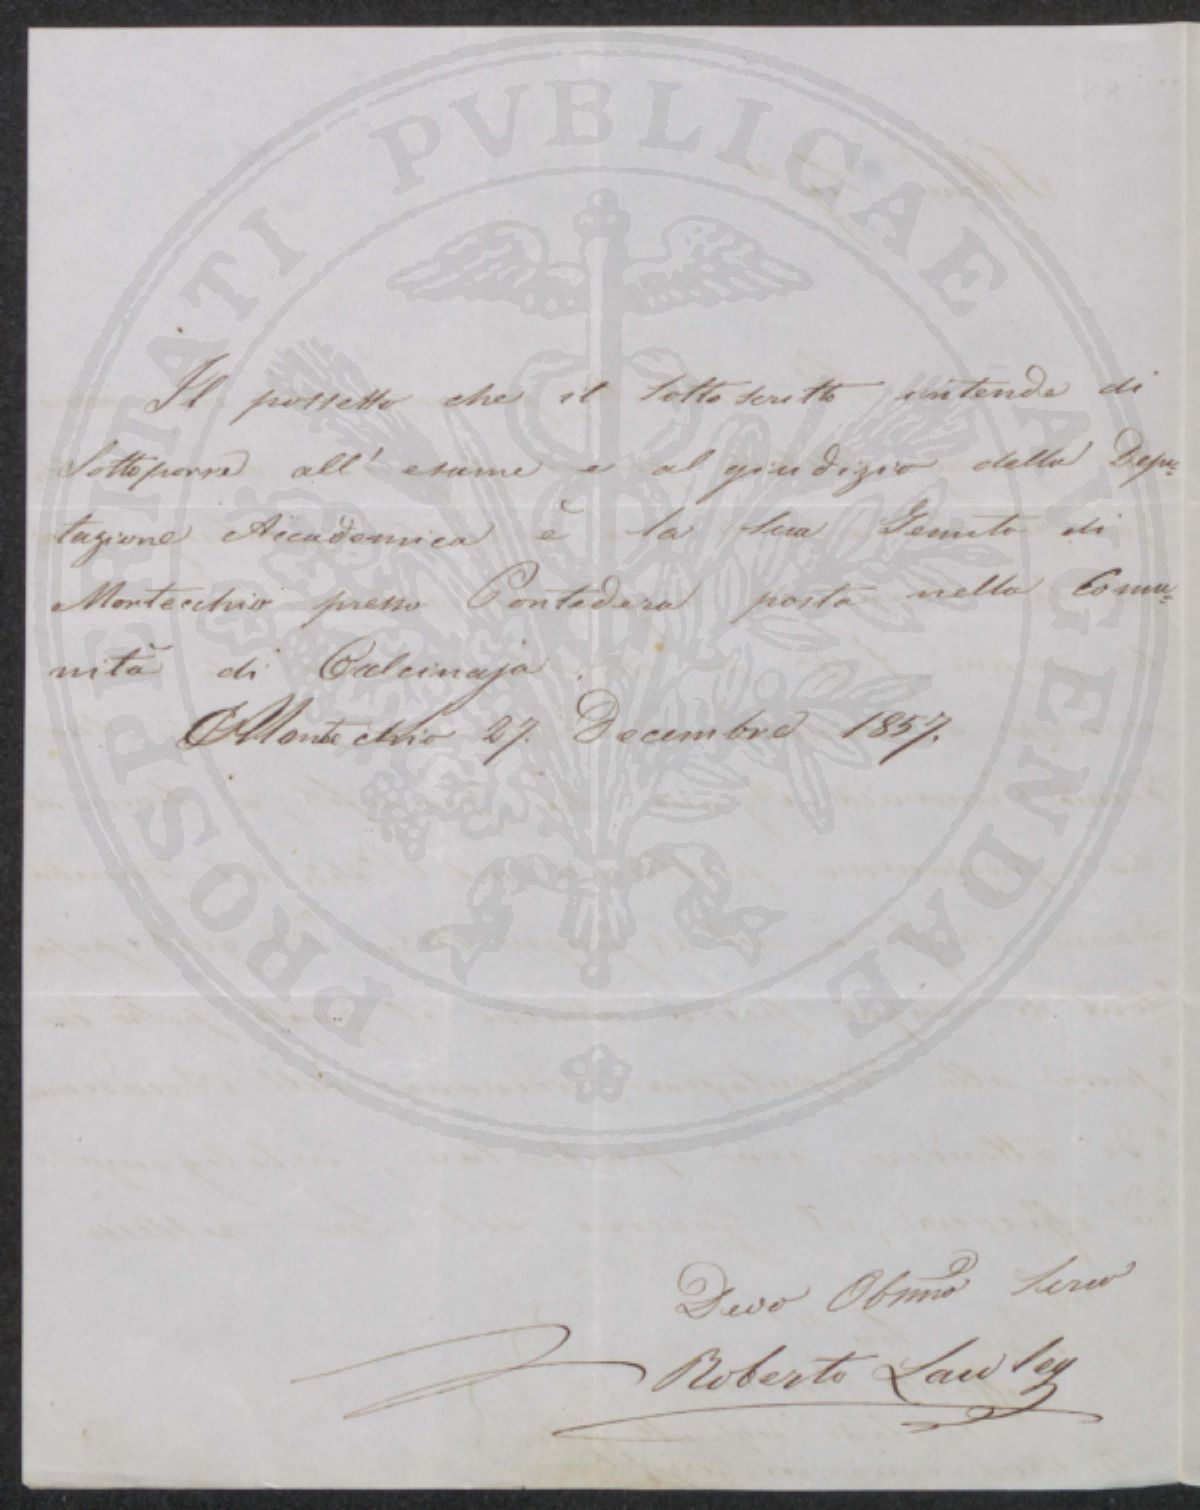 PROSPERITATI PVBLICAE AVGENDAE
Il possesso che il sottoscritto intende di
Sottoporre all' esame e al giudizio della Depu=
tazione Accademica è la sua Tenuta di
Montecchio presso Pontedera posta nella Comu=
nità di Calcinaja.
Montecchio 27. Decembre 1857.
Devo Obbmo Servo
Roberto Lawley